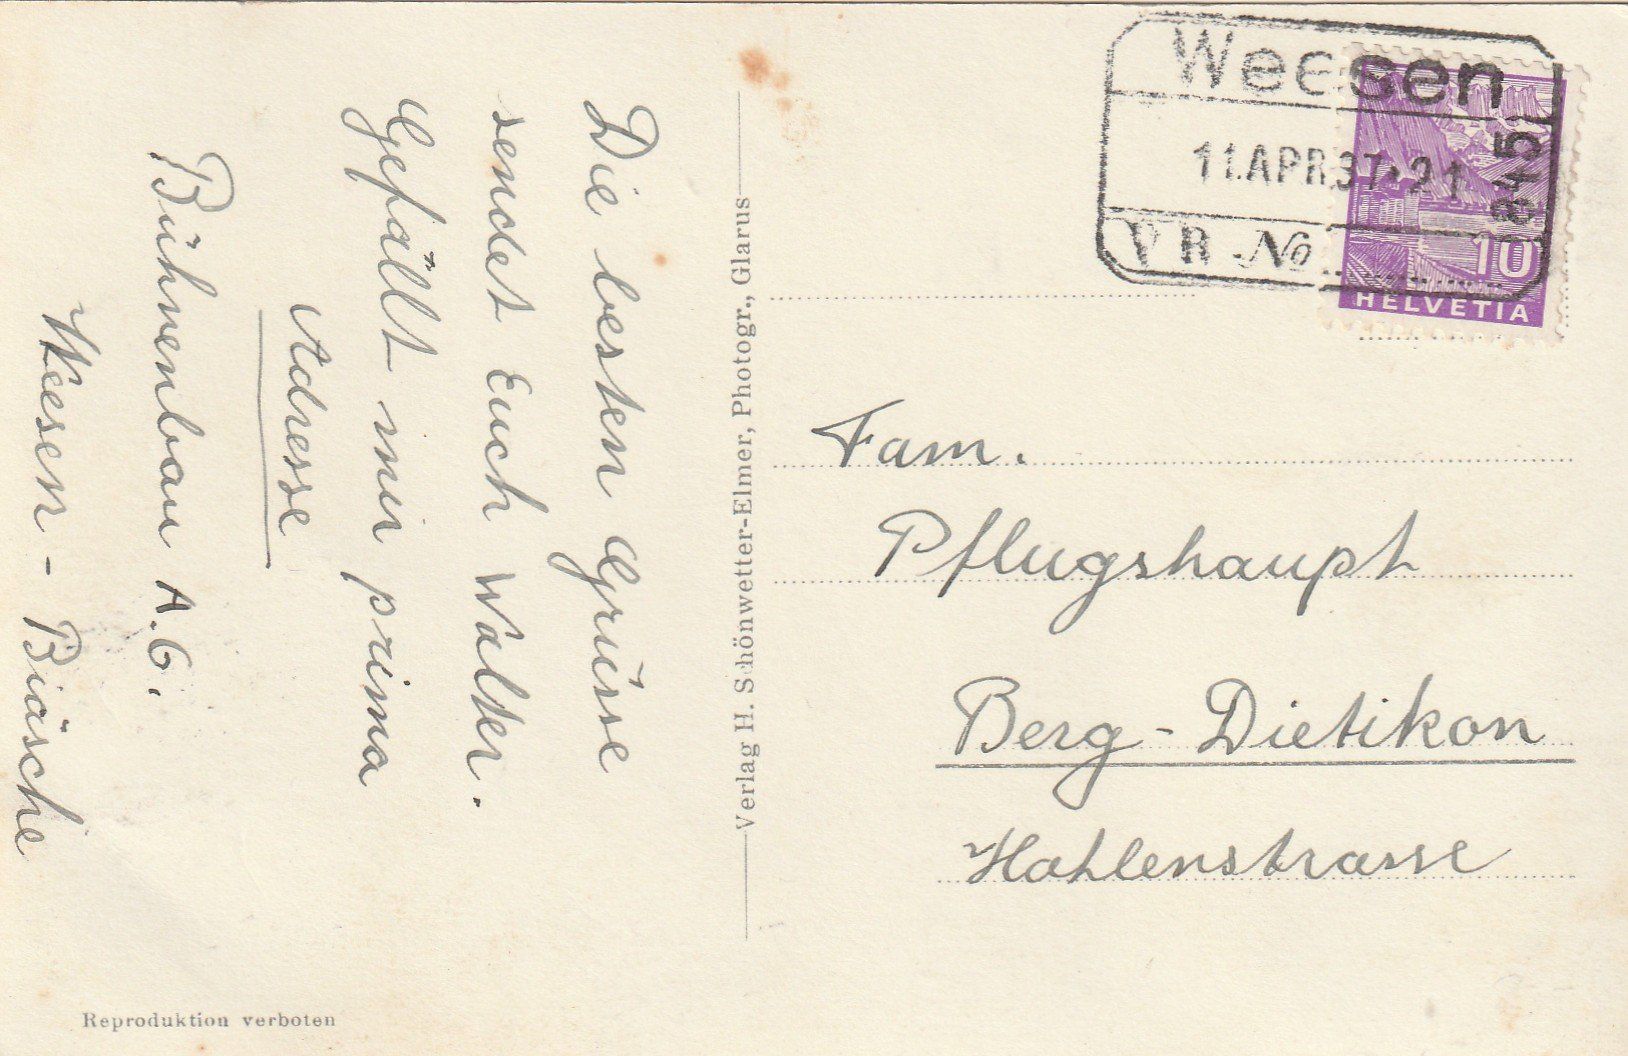 Die besten Grüsse
sendet Euch Walter.
Gefällt mir prima
Adresse
Bühnenbau A.G.
Weesen - Biäsche
Verlag H. Schönwetter-Elmer, Photogr., Glarus
Reproduktion verboten
Weesen
11.APR.37-21
845
V R No
10
HELVETIA
Fam.
Pflugshaupt
Berg-Dietikon
Hohlenstrasse